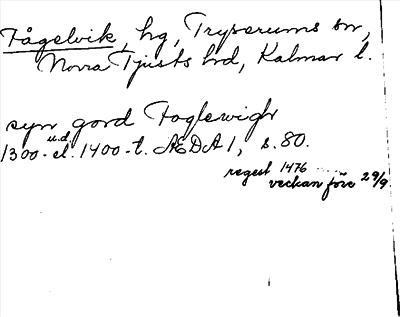 Fågelvik, hg, Tryserums sn,
Norra Tjusts hd, Kalmar l.
syn gord Foglewigh
u.d.
1300- el. 1400-t. ÆDA 1, s. 80.
regest 1476 .....
veckan före 29/9.